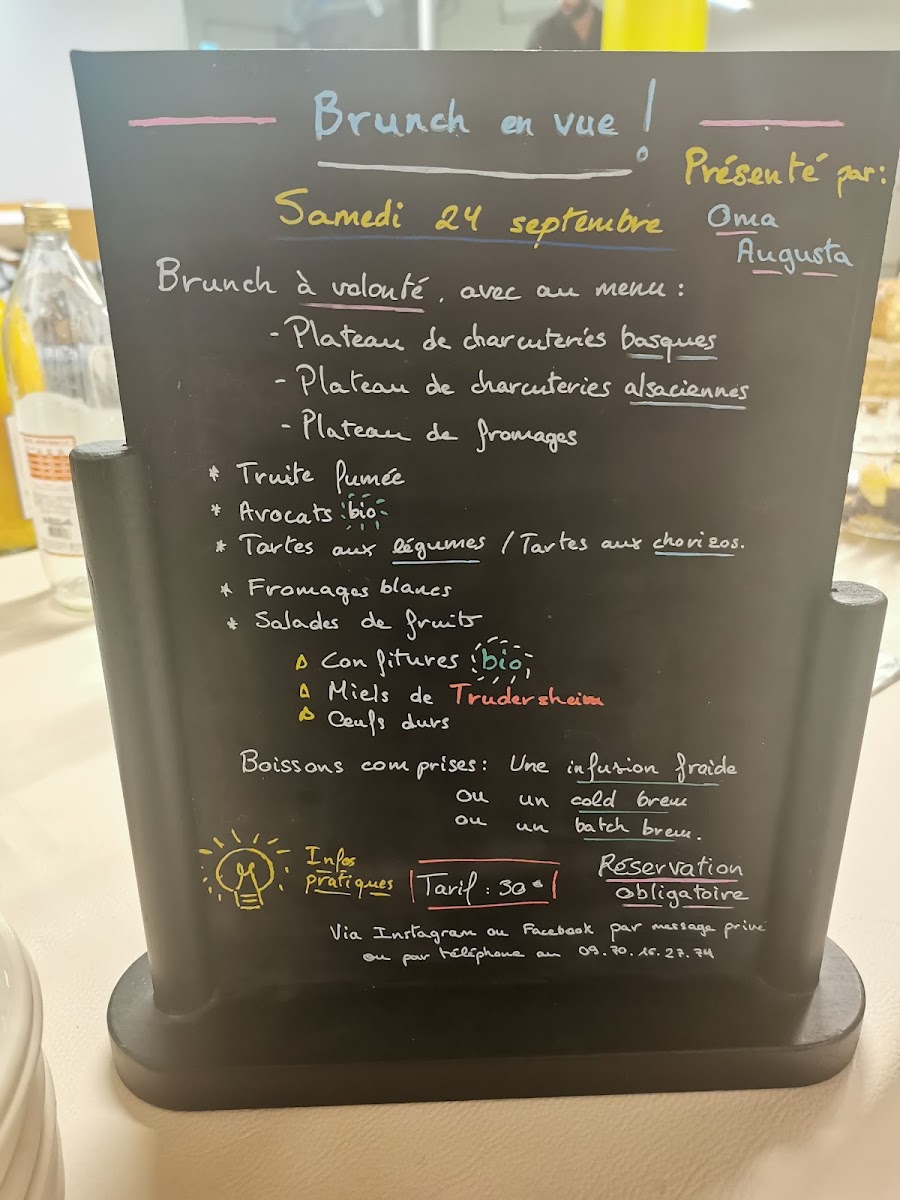 Brunch en vue !
Présenté par :
Samedi 24 septembre
Oma
Augusta
Brunch à volonté, avec au menu :
- Plateau de charcuteries basques
- Plateau de charcuteries alsaciennes
- Plateau de fromages
* Truite fumée
* Avocats bio
* Tartes aux légumes / Tartes aux chorizos.
* Fromages blancs
* Salades de fruits
Confitures bio
Miels de Trudersheim
Œufs durs
Boissons comprises : Une infusion froide
ou un cold brew
ou un batch brew.
Infos
pratiques
Tarif : 30€
Réservation
obligatoire
Via Instagram ou Facebook par message privé
ou par téléphone au 09.70.16.27.74